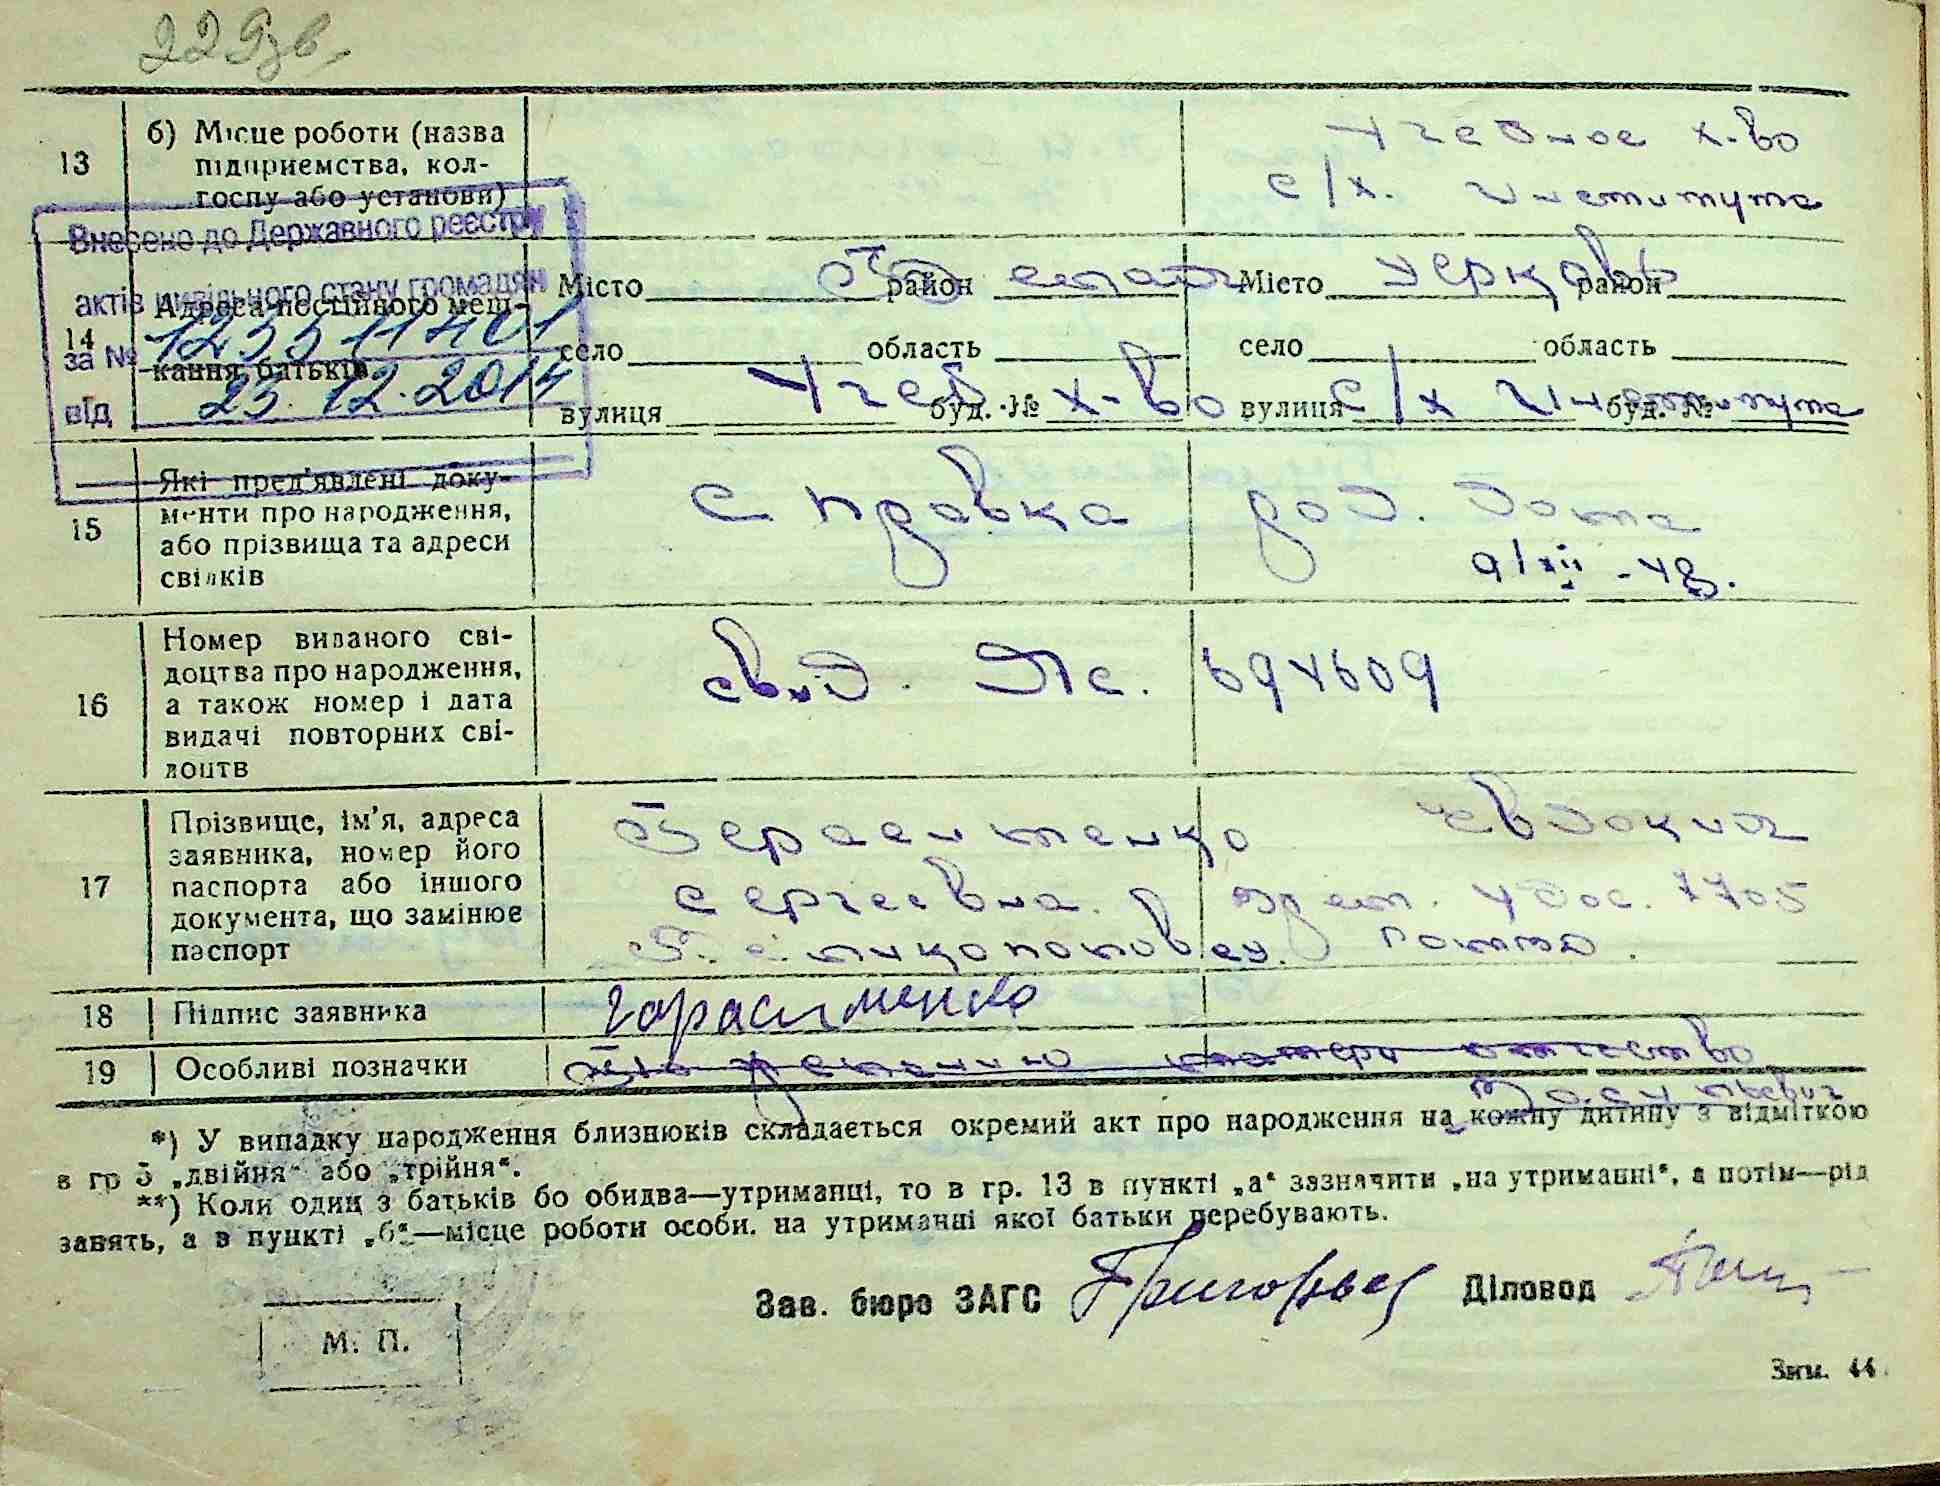 13
б) Місце роботи (назва
підприємства, кол-
госпу або установи)
Учебное х-во
с/х. Института
Внесено до Державного реєстру
актів цивільного стану громадян
за №
від 23.12.2014
14
Адреса постійного меш-
кання батьків
Місто район Місто район
село область село область
вулиця буд. № вулиця буд. №
Белая Церковь
Учеб х-во с/х Института
15
Які пред'явлені доку-
менти про народження,
або прізвища та адреси
свідків
Справка род. дома
9/XII-48.
16
Номер виданого сві-
доцтва про народження,
а також номер і дата
видачі повторних сві-
доцтв
свид. 694609
17
Прізвище, ім'я, адреса
заявника, номер його
паспорта або іншого
документа, що замінює
паспорт
Герасименко Евдокия
Сергеевна. удос. 7705
18 Підпис заявника
Герасименко
19 Особливі позначки
По желанию матери отчество
Васильевич
*) У випадку народження близнюків складається окремий акт про народження на кожну дитину з відміткою
в гр 5 „двійня“ або „трійня“.
**) Коли один з батьків бо обидва—утриманці, то в гр. 13 в пункті „а“ зазначити „на утриманні“, а потім—рід
занять, а в пункті „б“—місце роботи особи, на утриманні якої батьки перебувають.
Зав. бюро ЗАГС Діловод
М. П.
Зим. 44